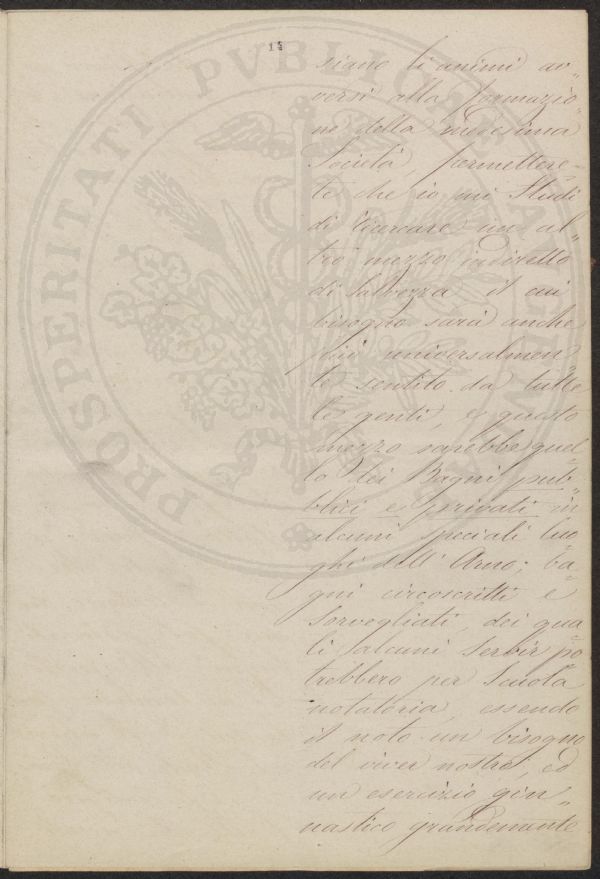 15
siano li animi av„
versi alla formazio„
ne della medesima
Società, permettere„
te che io mi studi
di ricercare un al„
tro mezzo indiretto
di salvezza il cui
bisogno sarà anche
più universalmen„
te sentito da tutte
le genti, e questo
mezzo sarebbe quel„
lo dei Bagni pub„
blici e privati in
alcuni speciali luo„
ghi dell'Arno; ba„
gni circoscritti e
sorvegliati, dei qua„
li falcuni servir po„
trebbero per scuola
notatoria, essendo
il noto un bisogno
del viver nostro, ed
un esercizio gin„
nastico grandemente
PROSPERITATI PVBLICAE AVGENDAE